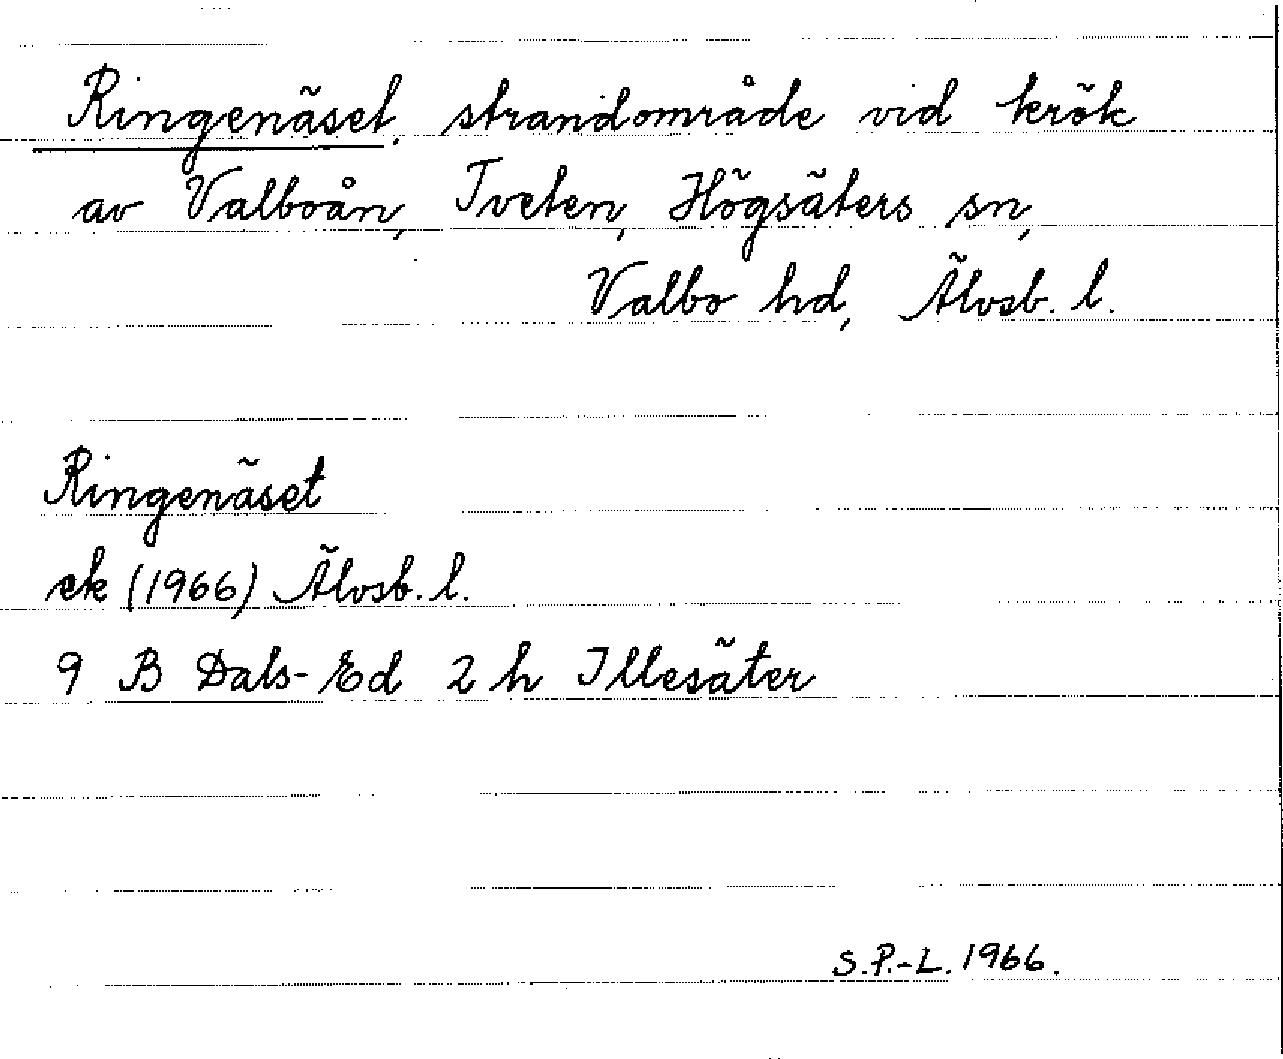 Ringenäset, strandområde vid krök
av Valboån, Tveten, Högsäters sn,
Valbo hd, Älvsb. l.
Ringenäset
ek (1966) Älvsb. l.
9 B Dals-Ed 2 h Illesäter
S.P.-L. 1966.